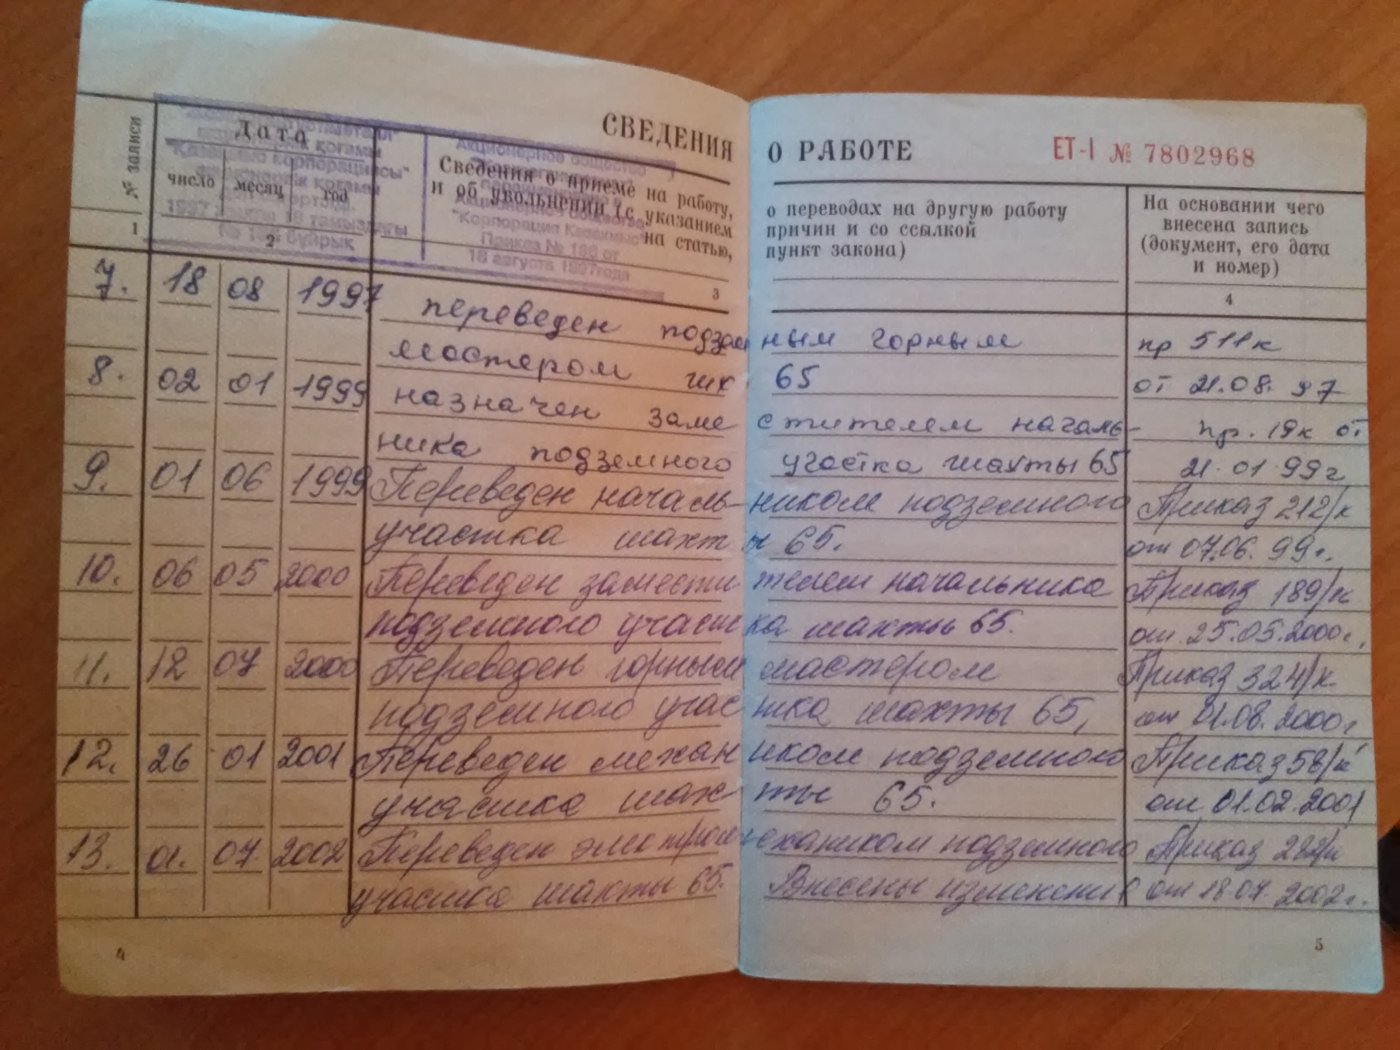 СВЕДЕНИЯ О РАБОТЕ ЕТ-I № 7802968
№ записи
Дата
число месяц год
Сведения о приеме на работу, о переводах на другую работу
и об увольнении (с указанием причин и со ссылкой
на статью, пункт закона)
На основании чего
внесена запись
(документ, его дата
и номер)
1 2 3 4
корпорациясы"
1997 жылғы 18 тамыздағы
бұйрық
Акционерное общество
"Корпорация Казахмыс"
Приказ № 166 от
18 августа 1997года
7. 18 08 1997 переведен подземным горным пр 511к
мастером шх 65 от 21.08.97
8. 02 01 1999 назначен заместителем началь- пр. 19к от
ника подземного участка шахты 65 21.01.99г
9. 01 06 1999 Переведен начальником подземного Приказ 212/к
участка шахты 65. от 07.06.99г.
10. 06 05 2000 Переведен заместителем начальника Приказ 189/к
подземного участка шахты 65. от 25.05.2000г.
11. 12 07 2000 Переведен горным мастером Приказ 324/к
подземного участка шахты 65, от 01.08.2000г
12. 26 01 2001 Переведен механиком подземного Приказ 58/к
участка шахты 65. от 01.02.2001
13. 01. 07 2002 Переведен электромехаником подземного Приказ
участка шахты 65. Внесены изменения от 18.07.2002г.
4 5